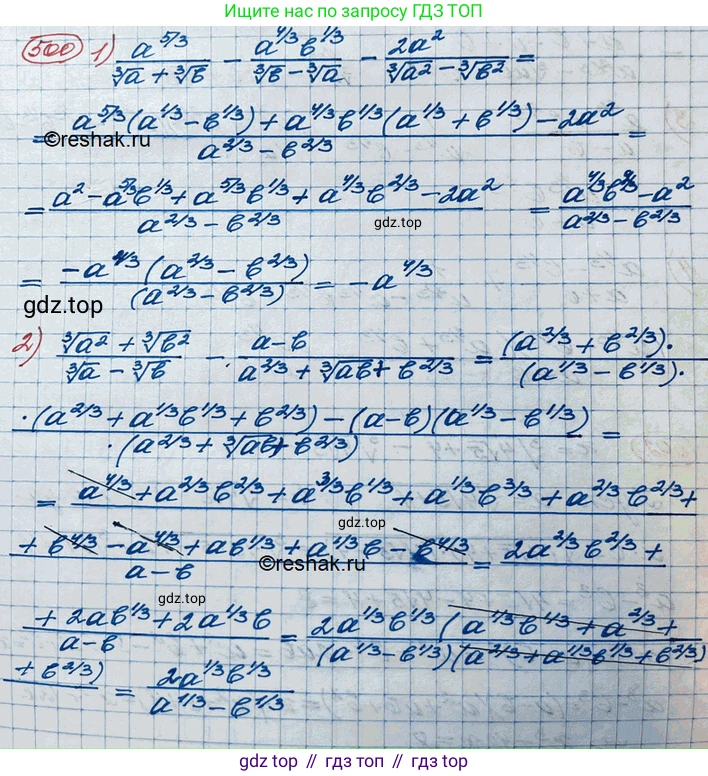 Ищите нас по запросу ГДЗ ТОП
500 1) a^{5/3}/(∛a + ∛b) − a^{4/3}b^{1/3}/(∛b − ∛a) − 2a²/(∛a² − ∛b²) =
= (a^{5/3}(a^{1/3} − b^{1/3}) + a^{4/3}b^{1/3}(a^{1/3} + b^{1/3}) − 2a²)/(a^{2/3} − b^{2/3}) =
©reshak.ru
= (a² − a^{5/3}b^{1/3} + a^{5/3}b^{1/3} + a^{4/3}b^{2/3} − 2a²)/(a^{2/3} − b^{2/3}) = (a^{4/3}b^{2/3} − a²)/(a^{2/3} − b^{2/3})
gdz.top
= −a^{4/3}(a^{2/3} − b^{2/3})/(a^{2/3} − b^{2/3}) = −a^{4/3}
gdz.top
2) (∛a² + ∛b²)/(∛a − ∛b) − (a−b)/(a^{2/3} + ∛ab + b^{2/3}) = (a^{2/3} + b^{2/3})·/(a^{1/3} − b^{1/3})·
·(a^{2/3} + a^{1/3}b^{1/3} + b^{2/3}) − (a−b)(a^{1/3} − b^{1/3})/·(a^{2/3} + ∛ab + b^{2/3}) =
= a^{4/3} + a^{2/3}b^{2/3} + a^{3/3}b^{1/3} + a^{1/3}b^{3/3} + a^{2/3}b^{2/3} +
gdz.top
+ b^{4/3} − a^{4/3} + ab^{1/3} + a^{1/3}b − b^{4/3}/(a−b) = 2a^{2/3}b^{2/3} +
©reshak.ru
gdz.top
+ 2ab^{1/3} + 2a^{1/3}b/(a−b) = 2a^{1/3}b^{1/3}(a^{1/3}b^{1/3} + a^{2/3} +/(a^{1/3} − b^{1/3})(a^{2/3} + a^{1/3}b^{1/3} + b^{2/3})
+ b^{2/3}) = 2a^{1/3}b^{1/3}/(a^{1/3} − b^{1/3})
gdz.top // гдз топ // гдз.топ